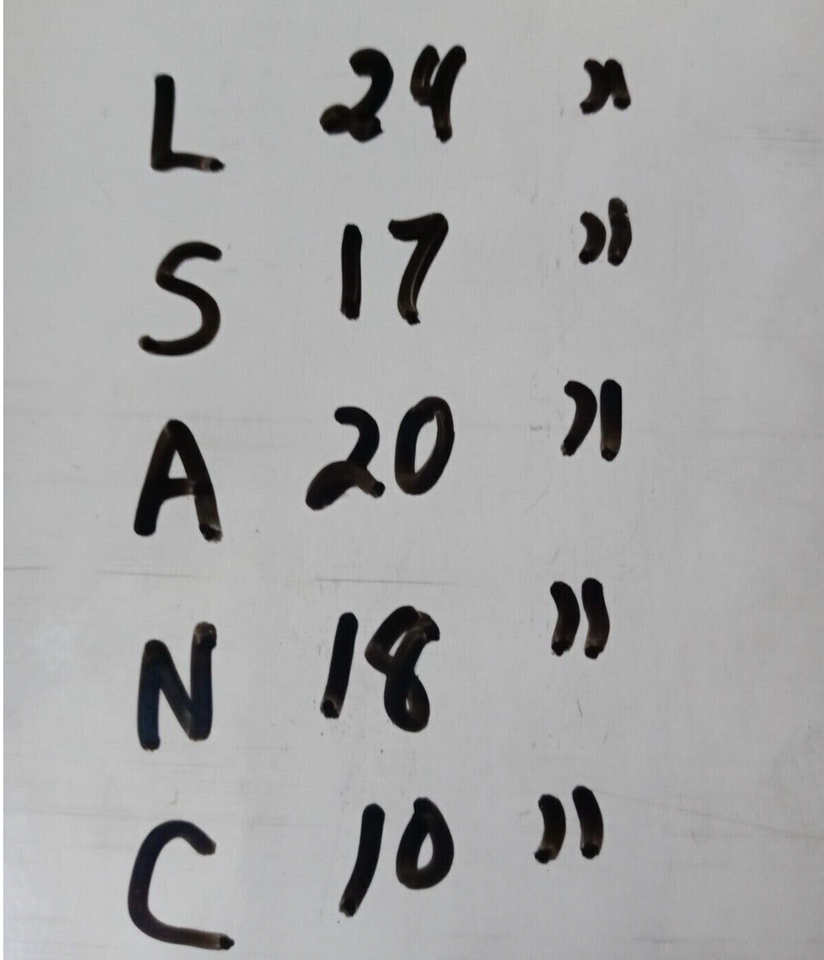 L 24 "
S 17 "
A 20 "
N 18 "
C 10 "